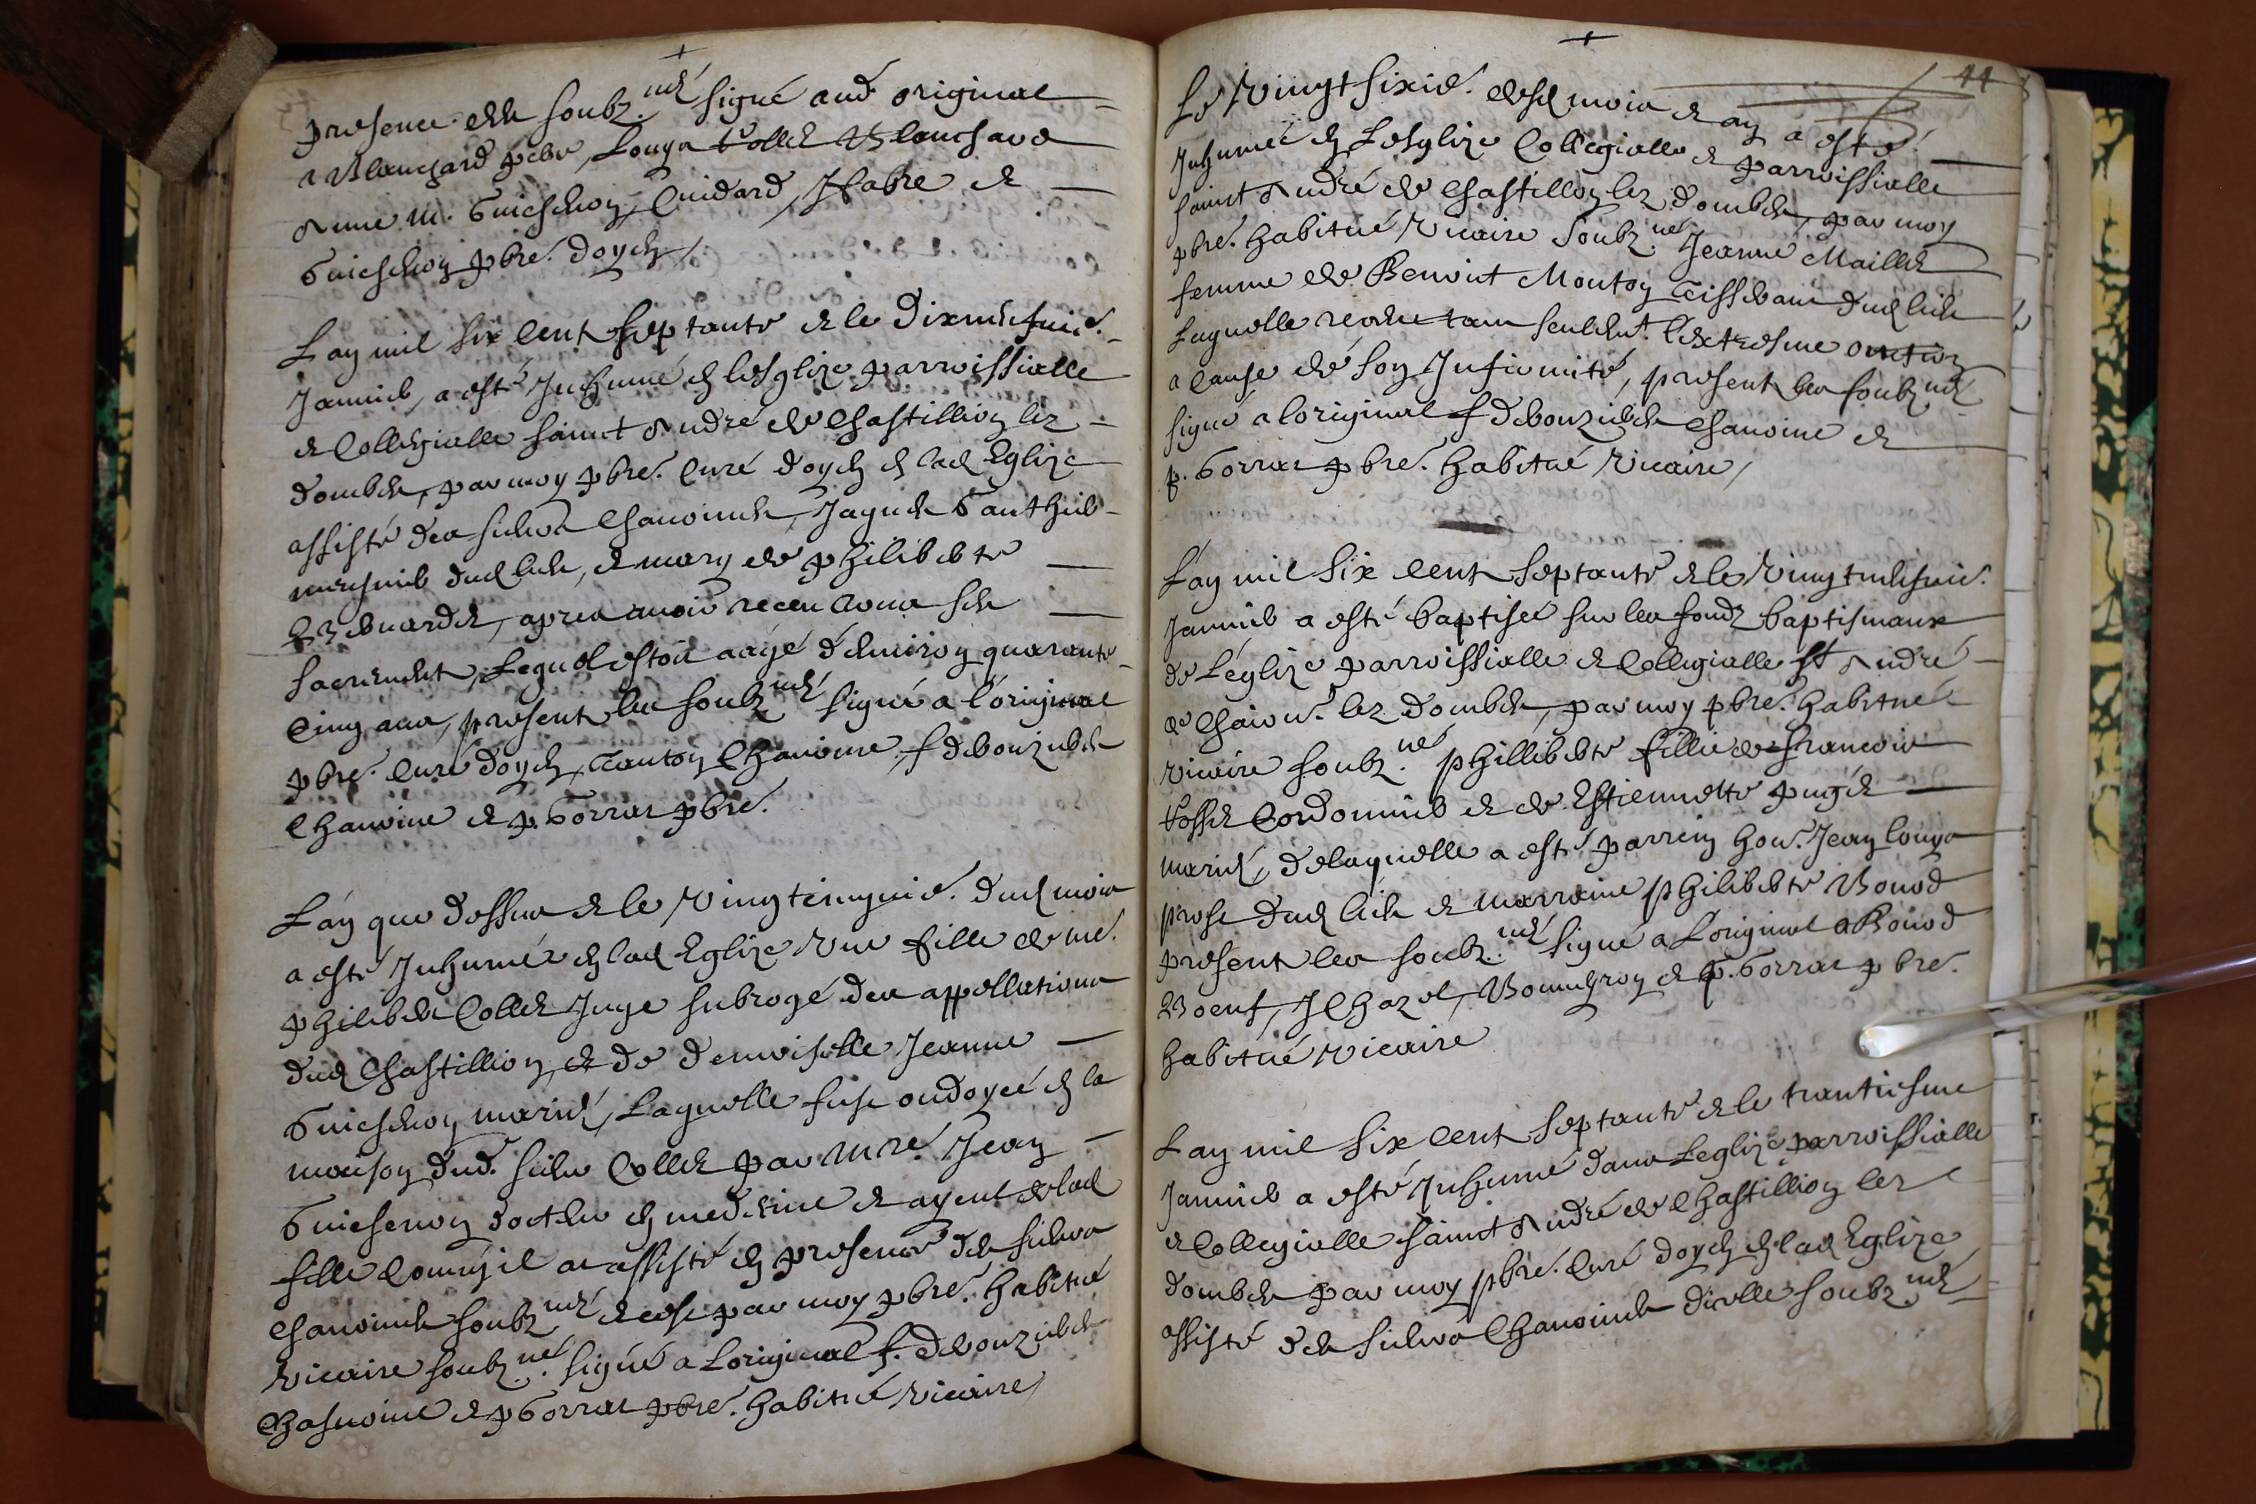 presence des soubz.nés signé aud original
Blanchard pcbr, Louys Collet Blanchard
Anne M. Guichenon, Cuidard, JFabre et
Guichenon pbre. doyen
Lan mil six cent septante et le dixneufuie.
Januier, a esté Inhumé en lesglize parroissialle
et Collegialle sainct André de Chastillion lez
dombes, par moy pbre. Curé doyen en lad Eglize
assisté des sieurs Chanoines, Jaques Gauthier
mesnier dud lieu, et mary de philiberte
Ebeuardet, apres auoir receu tous ses
sacrements, Lequel estoit aagé denuiron quarante
cinq ans, present les soubz.nés signé a loriginal
pbre. Curé doyen, Canton Chanoine, f debouzubes
Chanoine et p. Gorrat pbre.
Lan que dessus et le vingtcinquie. dud mois
a esté Inhumée en lad Eglize vne fille de me.
philibert Collet Juge subrogé des appellations
dud Chastillion, et de demoiselle Jeanne
Guichenon mariés, Laquelle fust ondoyée en la
maison dud. sieur Collet par mre. Jean
Guichenon docteur en medecine et ayeul de lad
fille comme il a assisté en presence des sieurs
Chanoines soubz.nés et ce par moy pbre. habitué
vicaire soubz.né signé a Loriginal f. debouzubes
Chanoine et p Gorrat pbre. habitué vicaire
44
Le vingt sixie. desd mois et an a esté
Inhumée en Lesglize Collegialle et parroissialle
sainct André de Chastillon lez dombes, par moy
pbre. habitué vicaire soubz.né Jeanne Maillet
femme de Benoist Monton tisserant dud lieu
Laquelle receut tant seulement. lextresme onction
a cause de son Infirmité, present les soubz.nés
signé a loriginal f debouzubes Chanoine et
p. Gorrat pbre. habitué vicaire
Lan mil six cent septante et le vingtneufuie.
Januier a esté baptisée sur les fondz baptismaux
de Léglize parroissialle et Collegialle st André
de Chaion. lez dombes, par moy pbre. habitué
vicaire soubz.né phillibberte fille de francois
Cordonnier et de Estiennette puget
mariés, de laquelle a esté parrein hon. Jean Louys
prost dud lieu et marraine philiberte Bouod
present les soubz.nés signé a Loriginal Bouod
Boeuf, JChazel, et p. Gorrat pbre.
habitué vicaire
Lan mil six cent septante et le trantiesme
Januier a esté Inhumé dans Leglize parroissialle
et Collegialle sainct André de Chastillion lez
dombes par moy pbre. Curé doyen en lad Eglize
assisté des sieurs Chanoines dicelle soubz.nés